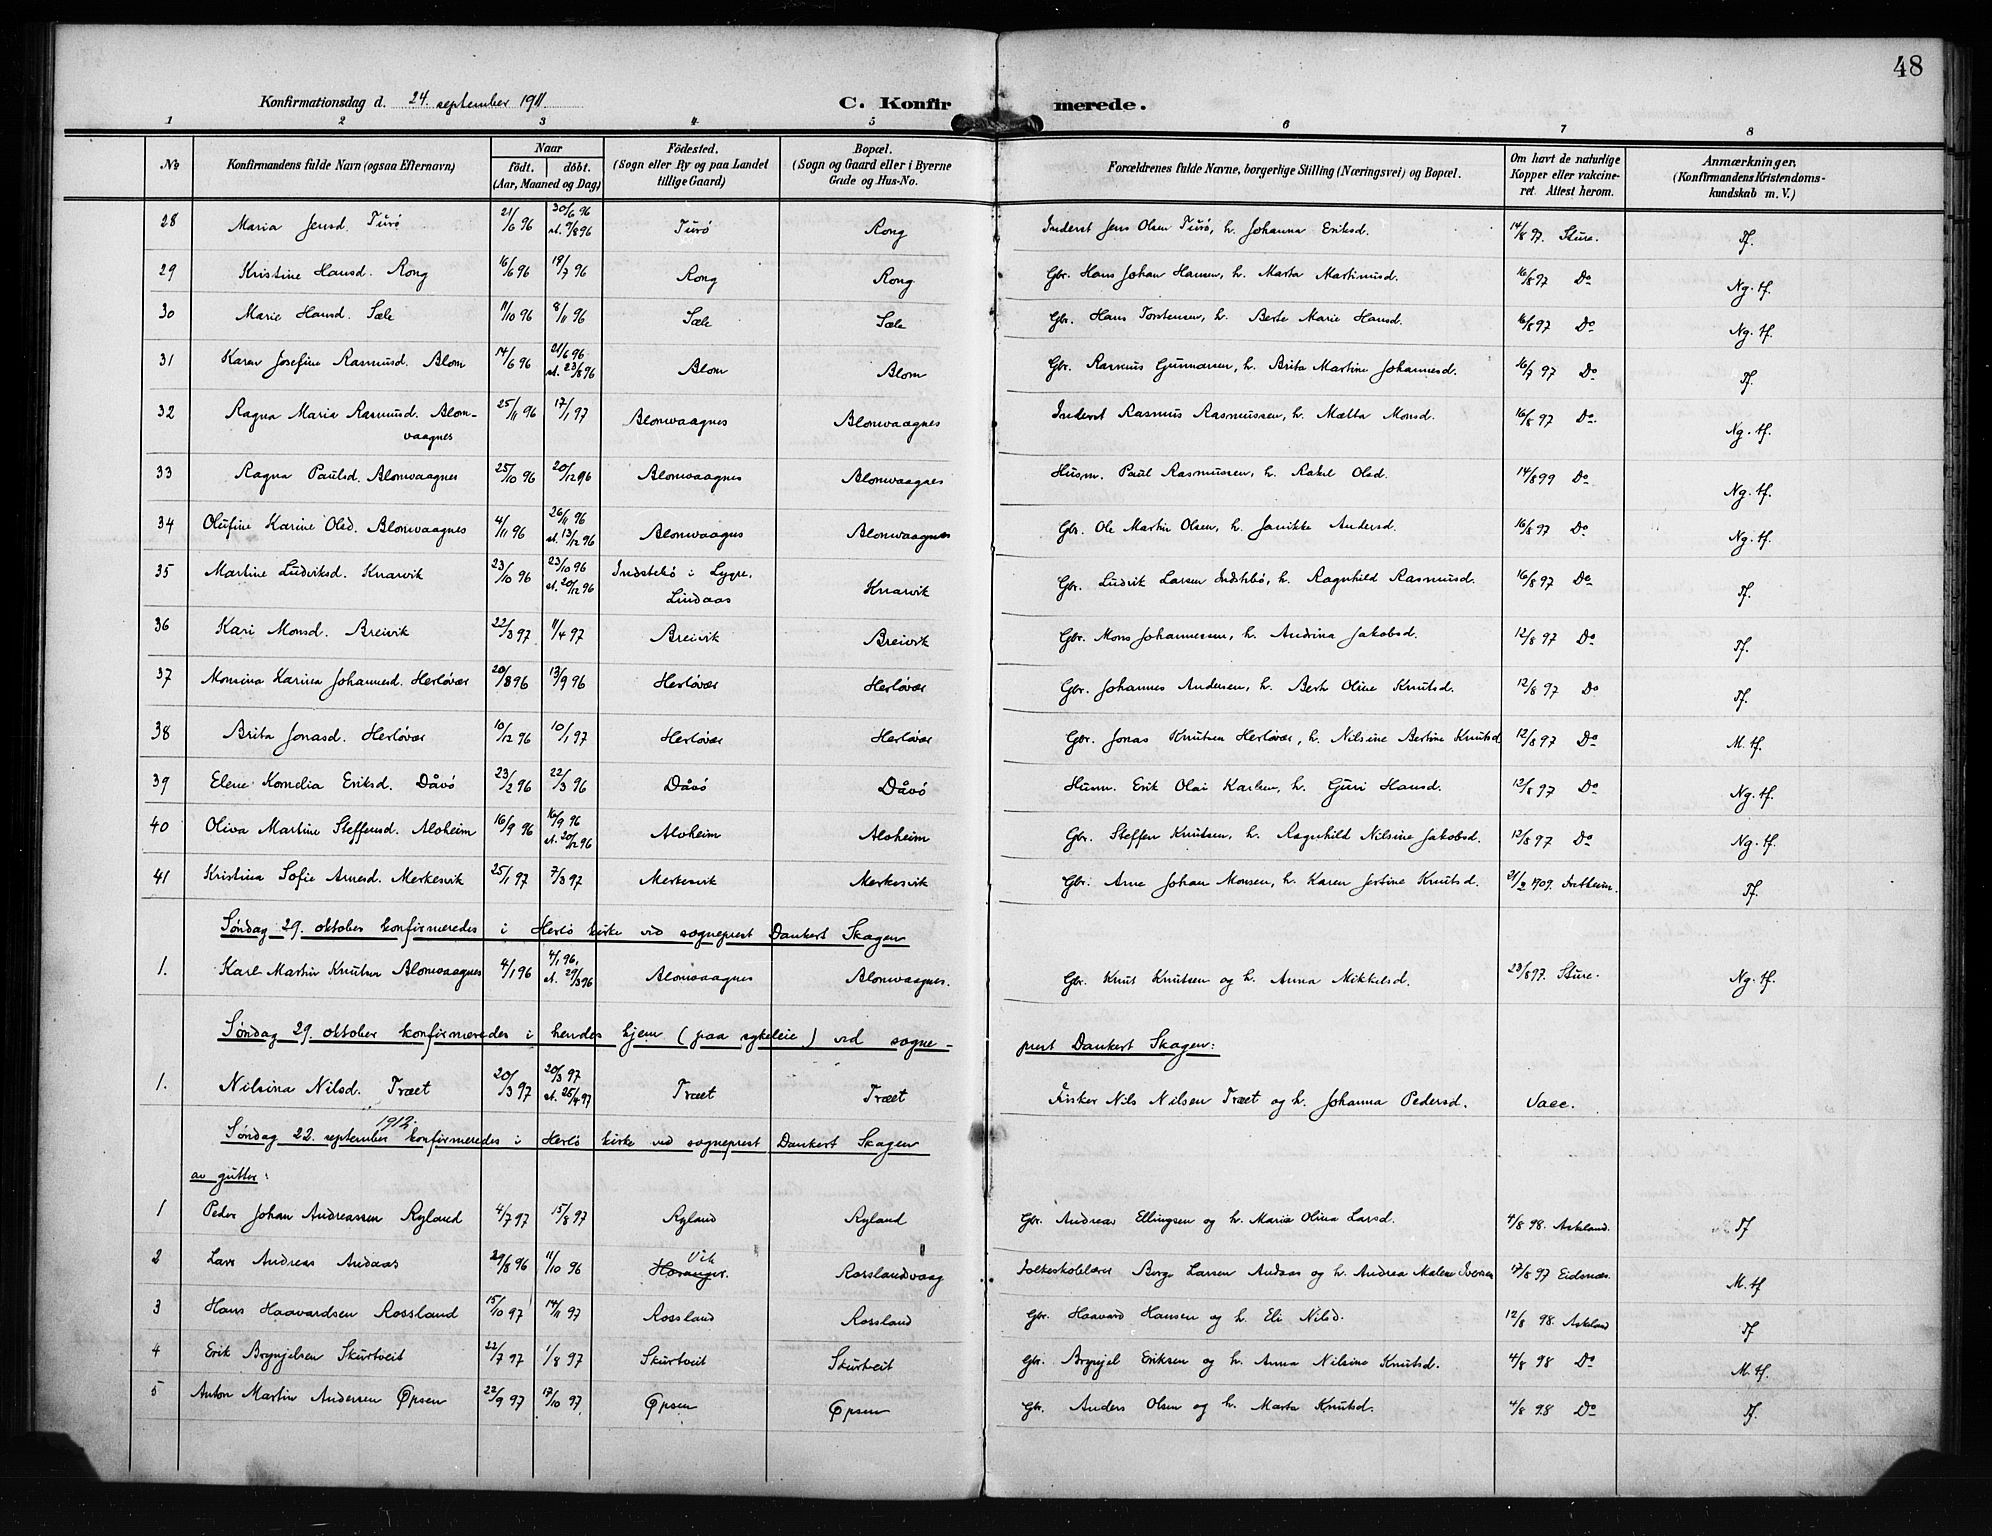 48
Konfirmationsdag d. 24. september 1911 C. Konfirmerede.
1 2 3 4 5 6 7 8
No Konfirmandens fulde Navn (ogsaa Efternavn) Naar födt. döbt. (Aar, Maaned og Dag) Födested. (Sogn eller By og paa Landet tillige Gaard) Bopæl. (Sogn og Gaard eller i Byerne Gade og Hus-No. Forældrenes fulde Navne, borgerlige Stilling (Næringsvei) og Bopæl. Om havt de naturlige Kopper eller vakcineret. Attest herom. Anmærkninger, (Konfirmandens Kristendomskundskab m. V.)
28 Maria Jensd. Turö 21/6 96 30/6 96 st. 9/8 96 Turö Rong Inderst Jens Olsen Turö, h. Johanna Eriksd. 14/8 97. Sture. Tf.
29 Kristine Hansd. Rong 16/6 96 19/7 96 Rong Rong Gbr. Hans Johan Hansen, h. Marta Martinusd. 16/8 97 Do Ng. tf.
30 Marie Hansd. Sæle 11/10 96 8/11 96 Sæle Sæle Gbr. Hans Torstensen, h. Berte Marie Hansd. 16/8 97 Do Ng. tf.
31 Karen Josefine Rasmusd. Blom 14/6 96 21/6 96 st. 23/8 96 Blom Blom Gbr. Rasmus Gunnarsen, h. Brita Martine Johannesd. 16/7 97 Do Tf.
32 Ragna Maria Rasmusd. Blomvaagnes 25/11 96 17/1 97 Blomvaagnes Blomvaagnes Inderst Rasmus Rasmussen, h. Mætta Monsd. 16/8 97 Do Ng. tf.
33 Ragna Paulsd. Blomvaagnes 25/10 96 20/12 96 Blomvaagnes Blomvaagnes Husm. Paul Rasmussen, h. Rakel Olsd. 14/8 99 Do Ng. tf.
34 Olufine Karine Olsd. Blomvaagnes 4/11 96 26/11 96 st. 13/12 96 Blomvaagnes Blomvaagnes Gbr. Ole Martin Olsen, h. Jannikke Andersd. 16/8 97 Do Ng. tf.
35 Martine Ludviksd. Knarvik 23/10 96 23/10 96 st. 20/12 96 Indstebö i Lygre, Lindaas Knarvik Gbr. Ludvik Larsen Indstebö, h. Ragnhild Rasmusd. 16/8 97 Do Tf.
36 Kari Monsd. Breivik 22/3 97 11/4 97 Breivik Breivik Gbr. Mons Johannessen, h. Andrina Jakobsd. 12/8 97 Do Tf.
37 Monsina Karina Johannesd. Herlövær 20/8 96 13/9 96 Herlövær Herlövær Gbr. Johannes Andersen, h. Berte Oline Knutsd. 12/8 97 Do Tf.
38 Brita Jonasd. Herlövær 10/12 96 10/1 97 Herlövær Herlövær Gbr. Jonas Knutsen Herlövær, h. Nilsine Bertine Knutsd 12/8 97 Do M. tf.
39 Elene Kornelia Eriksd. Dåvö 23/2 96 22/3 96 Dåvö Dåvö Husm. Erik Olai Karlsen, h. Guri Hansd. 12/8 97 Do Ng. tf.
40 Oliva Martine Steffensd. Alvheim 16/9 96 16/9 96 st. 20/12 96 Alvheim Alvheim Gbr. Steffen Knutsen, h. Ragnhild Nilsine Jakobsd. 12/8 97 Do Ng. tf.
41 Kristina Sofie Arnesd. Merkesvik 25/1 97 7/3 97 Merkesvik Merkesvik Gbr. Arne Johan Monsen, h. Karen Jertine Knutsd. 21/2 1909. Tf.
Söndag 29. oktober konfirmeredes i Herlö kirke ved sogneprest Dankert Skagen
1. Karl Martin Knutsen Blomvaagnes 4/1 96 4/1 96, st. 29/3 96 Blomvaagnes Blomvaagnes. Gbr. Knut Knutsen og h. Anna Mikkelsd. 23/8 97. Sture. Ng. tf.
Söndag 29. oktober konfirmeredes i hendes hjem (paa sykeleie) ved sogneprest Dankert Skagen:
1. Nilsina Nilsd. Træet 20/3 97 20/3 97 st. 25/4 97 Træet Træet Fisker Nils Nilsen Træet og h. Johanna Pedersd. Vacc.
Söndag 22. september 1912 konfirmeredes i Herlö kirke ved sogneprest Dankert Skagen
av gutter:
1 Peder Johan Andreassen Ryland 4/7 97 15/8 97 Ryland Ryland Gbr. Andreas Ellingsen og h. Marie Olina Larsd. 4/8 98. Askland. Tf
2 Lars Andreas Andaas 29/8 96 11/10 96 Hosanger. Vik Rosslandvaag Folkeskolelærer Berge Larsen Andaas og h. Andrea Malene Iversen 17/8 97 Eidsnæs. M. tf
3 Hans Haavardsen Rossland 15/10 97 14/11 97 Rossland Rossland Gbr. Haavard Hansen og h. Eli Nilsd. 12/8 98. Askland Tf
4 Erik Brynjelsen Skurtveit 22/7 97 1/8 97 Skurtveit Skurtveit Gbr. Brynjel Eriksen og h. Anna Nilsine Knutsd. 4/8 98 Do M. tf.
5 Anton Martin Andersen Øpsen 22/9 97 17/10 97. Øpsen Øpsen Gbr. Anders Olsen og h. Marta Knutsd. 4/8 98 Do Tf.